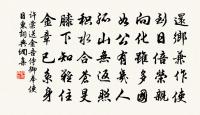 還鄉兼作使
到日倍榮親
向化雖多國
如公有幾人
孤山無返照
積水合蒼旻
膝下知難住
金章已繫身
許棠送金吾侍御奉使
日東詞典網集